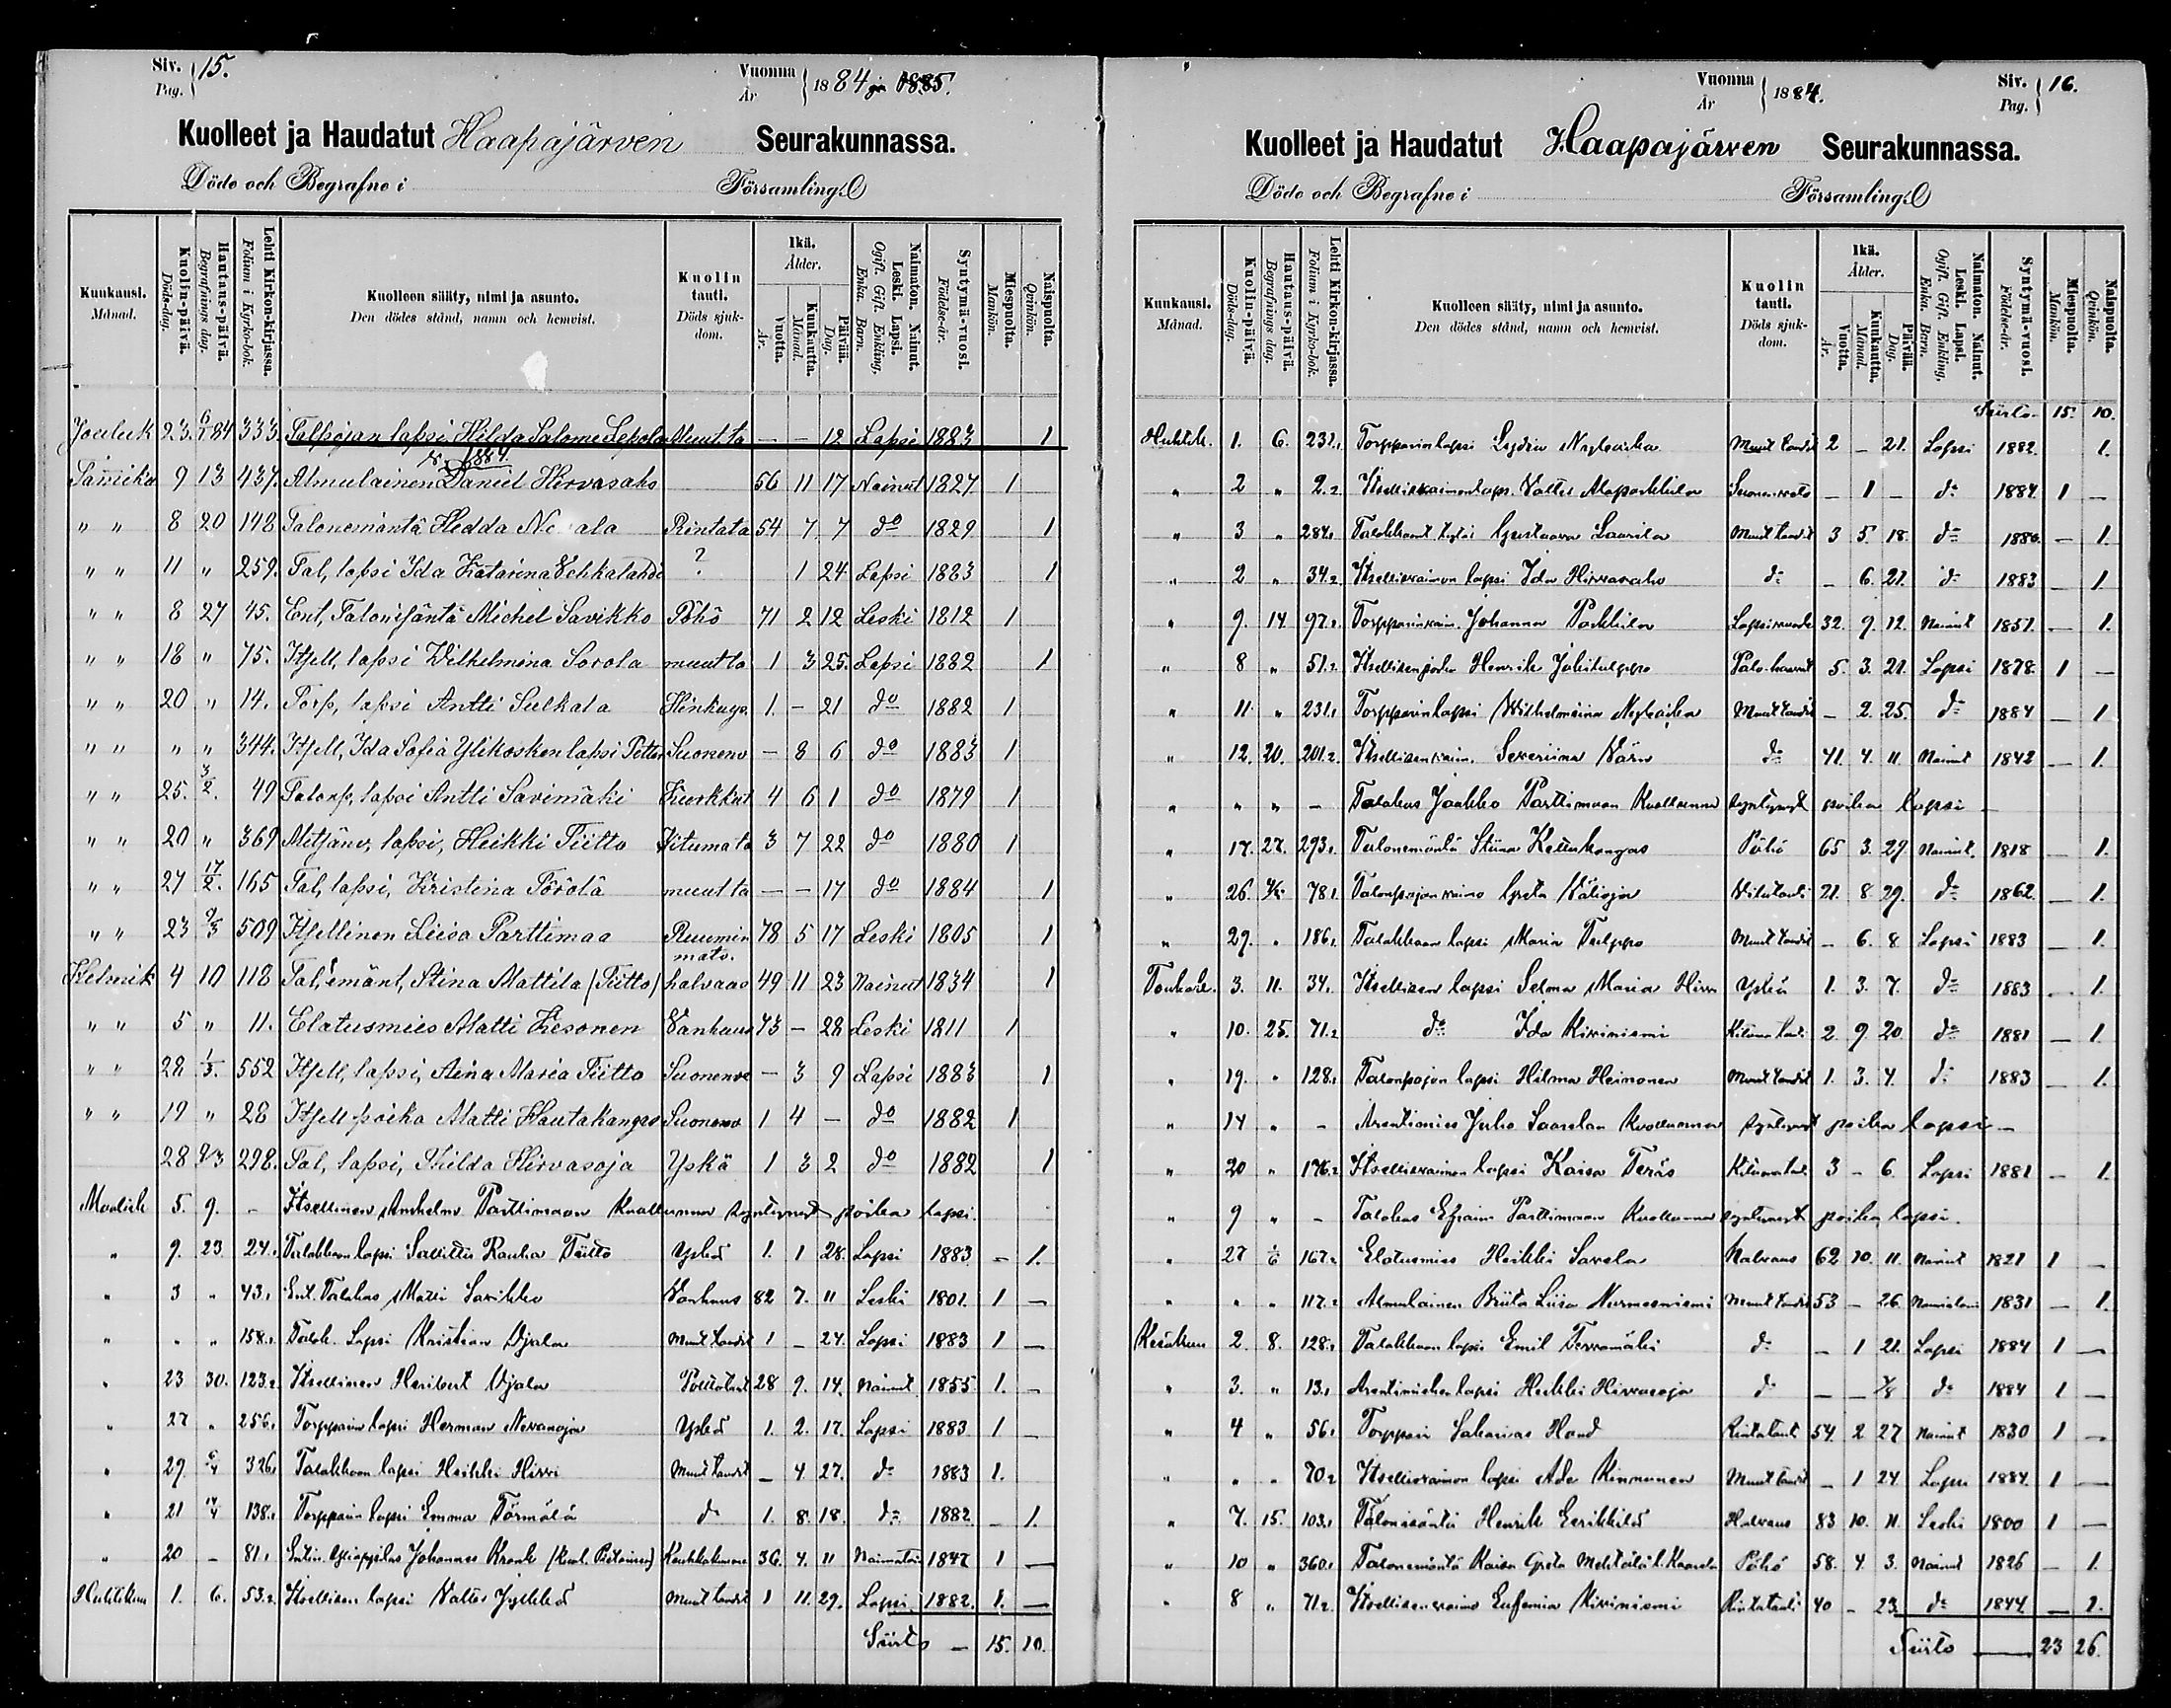 Siv. Pag. 15.
Vuonna År 1884 ja 1885.
Kuolleet ja Haudatut Haapajärven Seurakunnassa.
Döde och Begrafne i Församling.
Kuukausi. Månad. Kuolin-päivä. Döds-dag. Hautaus-päivä. Begrafnings dag. Lehti Kirkon-kirjassa. Folium i Kyrko-bok. Kuolleen sääty, nimi ja asunto. Den dödes stånd, namn och hemvist. Kuolin tauti. Döds sjukdom. Ikä. Ålder. Vuotta. År. Kuukautta. Månad. Päivää. Dag. Naimaton. Nainut. Leski. Lapsi. Ogift. Gift. Enkling. Enka. Barn. Syntymä-vuosi. Födelse-år. Miespuolta. Mankön. Naispuolta. Qvinkön.
Jouluk 23. 6/1 84 333. Talpojan lapsi Hilda Salome Lepola Muut ta — — 12 Lapsi 1883 1
v. 1884.
Tammika 9 13 437. Almulainen Daniel Hirvasaho 56 11 17 Nainut 1827 1
" " 8 20 148 Talonemäntä Hedda Rintata 54 7 7 do 1829 1
" " 11 " 259. Tal, lapsi Ida Katarina ? 1 24 Lapsi 1883 1
" " 8 27 45. Ent, Talonisäntä Michel Savikko Pöhö 71 2 12 Leski 1812 1
" " 18 " 75. Itsell, lapsi Wilhelmina Sorola muut ta 1 3 25. Lapsi 1882 1
" " 20 " 14. Torp, lapsi Antti Sulkala Hinkuys. 1. - 21 do 1882 1
" " " " 344. Itsell, Ida Sofia Ylikosken lapsi Petter Suonenv — 8 6 do 1883 1
" " 25. 3/2. 49 Talonp, lapsi Antti Savimäki Kurkkut 4 6 1 do 1879 1
" " 20 " 369 Metsänv, lapsi, Heikki Tiitto Kitumata 3 7 22 do 1880 1
" " 27 17/2. 165 Tal, lapsi, Kristina Pörölä muut ta — — 17 do 1884 1
" " 23 9/3 509 Itsellinen Liisa Parttimaa Ruumin mato. 78 5 17 Leski 1805 1
Helmik 4 10 118 Tal, emänt, Stina Mattila (Tiitto) halvaus 49 11 23 Nainut 1834 1
" " 5 " 11. Elatusmies Matti Kesonen Vanhuus 73 - 28 Leski 1811 1
" " 28 1/3. 552 Itsell, lapsi, Aina Maria Tiitto Suonenve — 3 9 Lapsi 1883 1
" " 19 " 28 Itsell poika Matti Hautakangas Suonenv 1 4 — do 1882 1
28 9/3 298. Tal, lapsi, Hilda Hirvasoja Yskä 1 3 2 do 1882 1
Maalisk 5. 9. - Itsellinen Parttimaan Kuolleena syntynyt poika lapsi.
" 9. 23. 24. Talokkaan lapsi Rauha Tiitto Yskä 1. 1 28. Lapsi 1883 — 1.
" 3 " 43. Ent. Talokas Matti Savikko Vanhuus 82 7. 11 Leski 1801. 1 —
" " " 158. Talok. Lapsi Kristian Ojala Muut taudit 1 — 24. Lapsi 1883 1 —
" 23 30. 123.2 Itsellinen Heribert Ojala Polttotaut 28 9. 14. Nainut 1855 1. -
" 27 " 256. Torpparin lapsi Herman Nevanoja Yskä 1. 2. 17. Lapsi 1883 1 —
" 29. 6/4 326. Talokkaan lapsi Heikki Hirvi Muut taudit — 4. 27. do 1883 1.
" 21 14/4 138. Torpparin lapsi Emma Törmälä do 1. 8. 18. do 1882. — 1.
" 20 — 81. Johannes Krank 36. 4. 11 Naimaton 1847 1 —
Huhtikuu 1. 6. 53.2 Itsellisen lapsi Valter Jyykkä Muut taudit 1 11. 29. Lapsi 1882. 1. —
Siirto — 15. 10.
Vuonna År 1884.
Siv. Pag. 16.
Kuolleet ja Haudatut Haapajärven Seurakunnassa.
Döde och Begrafne i Församling.
Kuukausi. Månad. Kuolin-päivä. Döds-dag. Hautaus-päivä. Begrafnings dag. Lehti Kirkon-kirjassa. Folium i Kyrko-bok. Kuolleen sääty, nimi ja asunto. Den dödes stånd, namn och hemvist. Kuolin tauti. Döds sjukdom. Ikä. Ålder. Vuotta. År. Kuukautta. Månad. Päivää. Dag. Naimaton. Nainut. Leski. Lapsi. Ogift. Gift. Enkling. Enka. Barn. Syntymä-vuosi. Födelse-år. Miespuolta. Mankön. Naispuolta. Qvinkön.
Siirto. 15. 10.
Huhtik. 1. 6. 231. Torpparin lapsi Lydia Muut taudit 2 — 21. Lapsi 1882. 1.
" 2 " 2.2 Itsellisvaimon laps. Valter Alaparkkila Suonenveto — 1 — do 1884. 1 —
" 3 " 284. Talokkaant. Gustaava Laurila Muut taudit 3 5. 18. do 1880. — 1.
" 2 " 34.2 Itsellisvaimon lapsi Ida Hirvasaho do — 6. 21. do 1883 — 1.
" 9. 14. 97. Torpparinvaim. Johanna Parkkila Lapsivuode 32. 9. 12. Nainut 1851. — 1.
" 8 " 51.2 Itsellisenpoika Henrik 5. 3. 21. Lapsi 1878. 1 —
" 11. " 231. Torpparinlapsi Wilhelmiina Muut taudit — 2. 25. do 1884 — 1
" 12. 20. 201.2 Itsellisenvaim. Severiina Wärn do 41. 4. 11. Nainut 1842 — 1.
" " " — Talokas Jaakko Parttimaan Kuolleena syntynyt poika lapsi —
" 17. 27. 293. Talonemäntä Stiina Kettukangas Pöhö 65 3. 29. Nainut. 1818 — 1.
" 26. 78. Talonpojanvaimo Greta Välioja 21. 8. 29. do 1862. — 1.
" 29. " 186. Talokkaan lapsi Maria Tulppo Muut taudit — 6. 8 Lapsi 1883 — 1.
Toukok. 3. 11. 34. Itsellisen lapsi Selma Maria Hirvi Yskä 1. 3. 7. do 1883 — 1.
" 10. 25. 71.2 do Ida Kiviniemi Kituma taut. 2. 9. 20. do 1881 — 1.
" 19. " 128. Talonpojan lapsi Hilma Heinonen Muut taudit 1. 3. 4. do 1883 — 1.
" 14 " — Arentimies Juho Saarelan Kuolleena syntynyt poika lapsi —
" 20 " 176.2 Itsellisvaimon lapsi Kaisa Teräs Kitumataut 3 — 6. Lapsi 1881 — 1.
" 9 " — Talokas Efraim Parttimaan Kuolleena syntynyt poika lapsi.
" 27 1/6 167.2 Elatusmies Heikki Savela Halvaus 62 10. 11. Nainut 1821 1 —
" " " 117.2 Almulainen Briita Liisa Nurmesniemi Muut taudit 53 — 26. 1831 — 1.
Kesäkuu 2. 8. 128. Talokkaan lapsi Emil Tervamäki do — 1 21. Lapsi 1884 1 —
" 3. " 13. Arentimiehen lapsi Heikki Hirvasoja do — — 7/8 do 1884 1 —
" 4 " 56. Torppari Sakarias Hand Rintataut 54. 2 27 Nainut 1830 1 —
" " " 70.2 Itsellisvaimon lapsi Ada Kinnunen Muut taudit — 1 24 Lapsi 1884. 1 —
" 7. 15. 103. Talonisäntä Henrik Eerikkilä Halvaus 83 10. 11. Leski 1800 1 —
" 10 " 360. Talonemäntä Kaisa Greta Pöhö 58. 4 3. Nainut 1826 — 1.
" 8 " 71.2 Itsellisenvaimo Eufemia Kiviniemi Rintatauti 40 — 23. do 1844. — 1.
Siirto — 23 26.